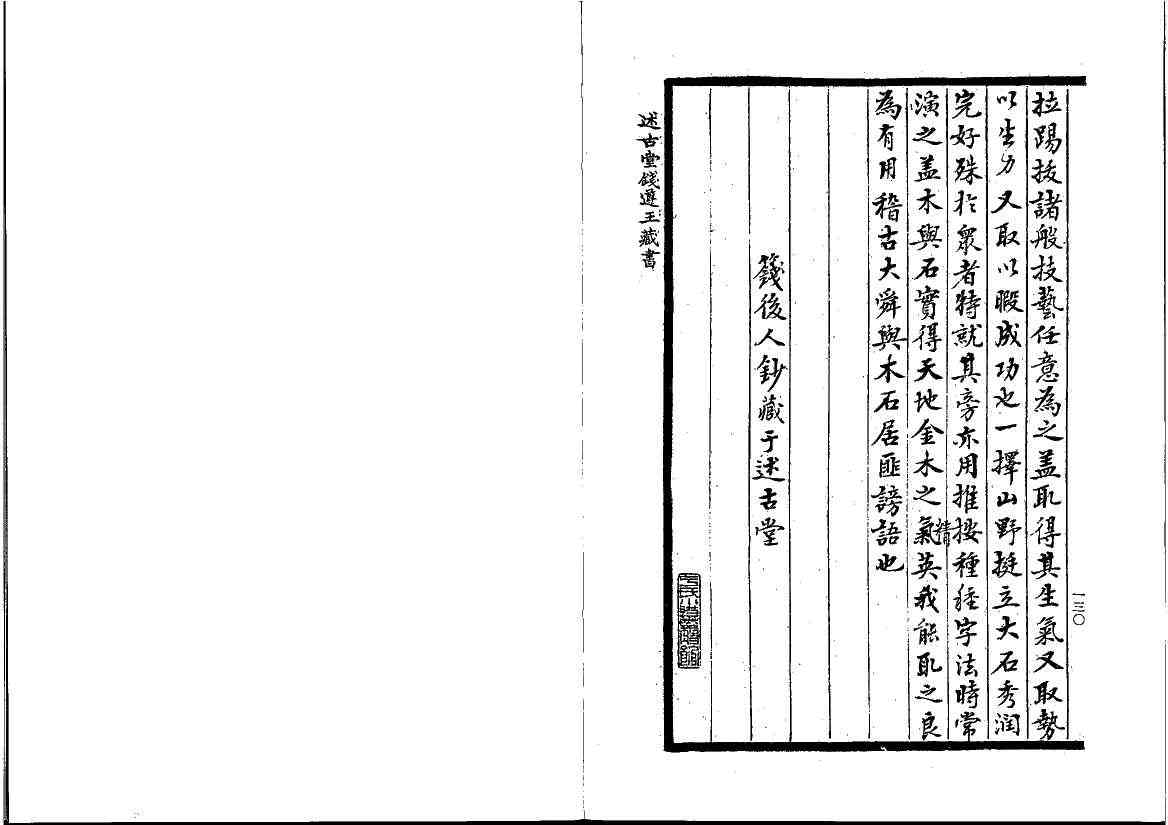 拉踢拔諸般技藝任意為之盖取得其生氣又取勢
以生力又取以暇成功也一擇山野挺立大石秀润
完好殊於衆者特就其旁亦用推按種種字法時常
演之盖木與石實得天地金木之氣精英我能取之良
為有用稽古大舜與木石居匪謗語也
籛後人鈔藏于述古堂
述古堂錢遵王藏書
一三〇